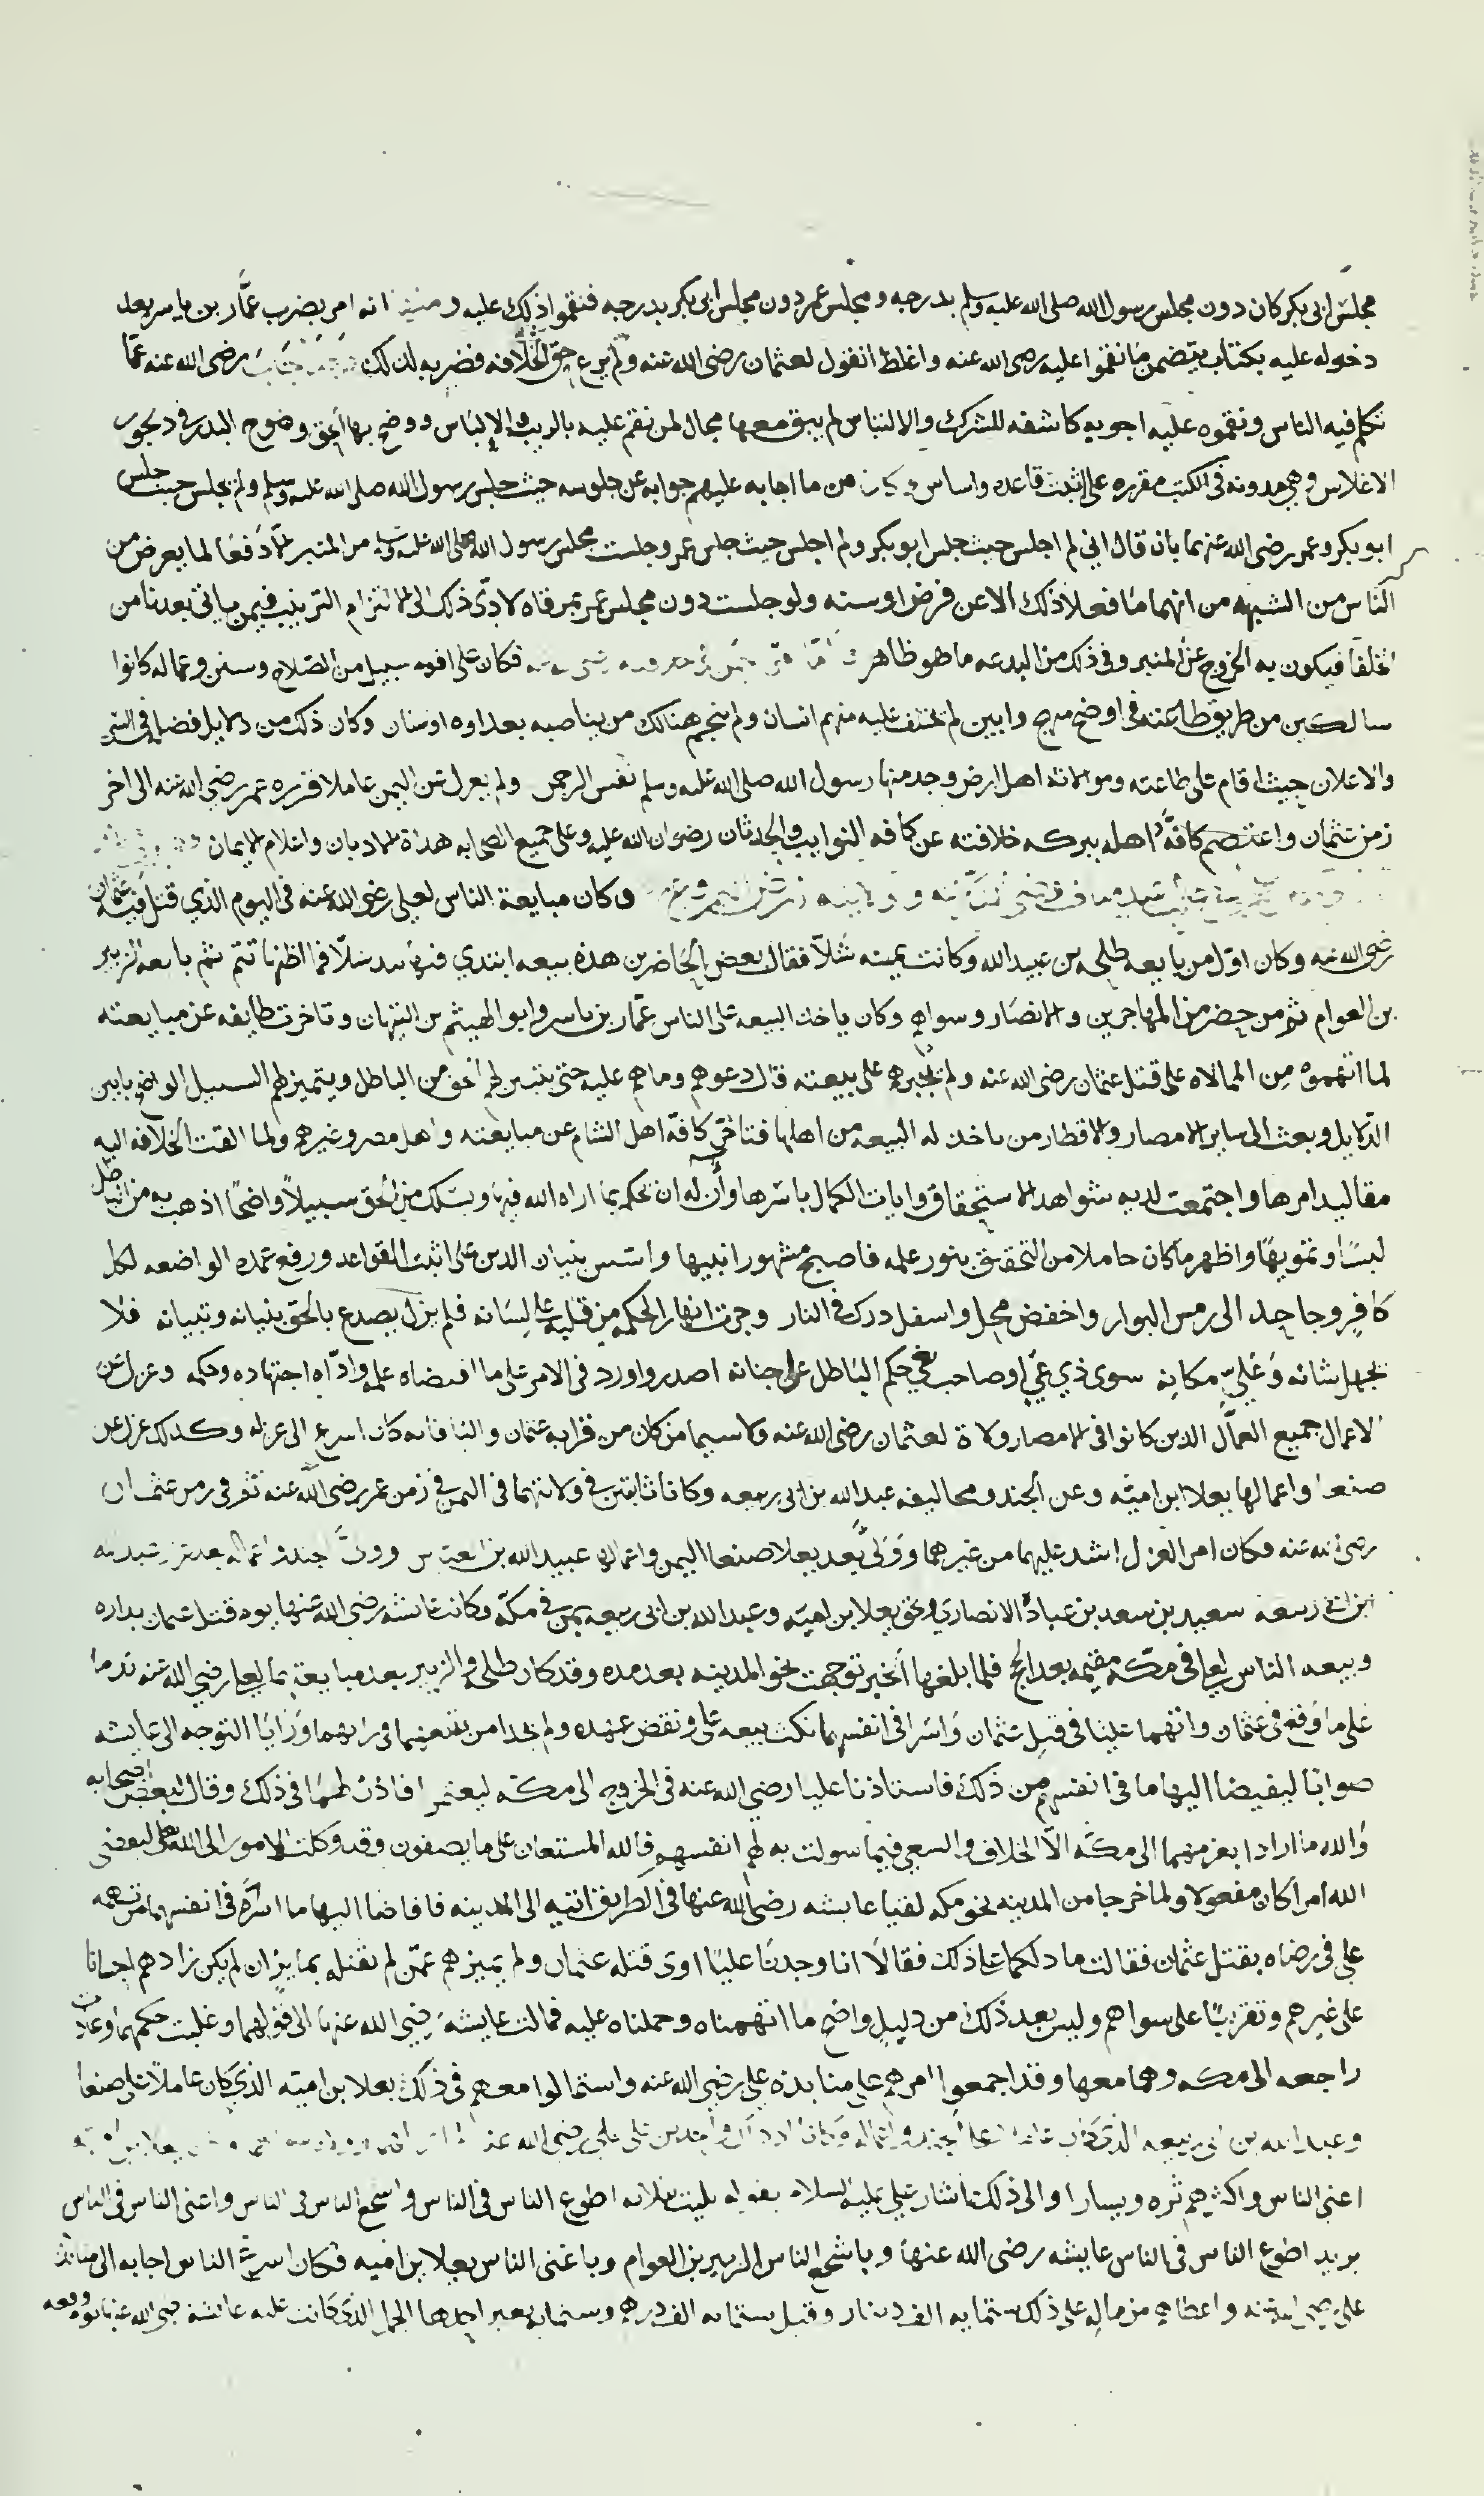 مجلس ابي بكر كان دون مجلس رسول الله صلى الله عليه وسلم بدرجه ومجلس عمر دون مجلس ابي بكر بدرجه فنقموا ذلك عليه ومنها انه امر بضرب عمّار بن ياسر بعد
دخوله عليه بكتاب يتضمن ما نقموا عليه رضى الله عنه واغلظ القول لعثمان رضى الله عنه ولم يرع حق الخلافه فضربه لذلك رضى الله عنه عمّا
تكلم فيه الناس ونقموه عليه اجوبه كاشفه للشرك والالتباس لم يبق معها مجال لمن نقم عليه بالريب والإلباس ووضح بها الحق وضوح البدر في دجور
الاغلاس وهي مدونه في الكتب مقرره على اثبت قاعده واساس من ما اجابه عليهم جوابه عن جلوسه حيث جلس رسول الله صلى الله عليه وسلم ولم يجلس حيث جلس
ابو بكر وعمر رضى الله عنهما بان قال اني لم اجلس حيث جلس ابو بكر ولم اجلس حيث جلس عمر وجلست مجلس رسول الله صلى الله عليه وسلم من المنبر الا دفعًا لما يعرض من
الناس من الشبهه من انهما ما فعلا ذلك الا عن فرض او سنه ولو جلست دون مجلس عمر بمرقاه لادّى ذلك الى التزام الترتيب فيمن ياتي بعدنا من
الخلفا فيكون به الخروج عن المنبر وفي ذلك من البدعه ما هو ظاهر فكان على اقوم سبيل من الصلاح وسنن وعماله كانوا
سالكين من طريق طاعته في اوضح منهج وابين لم يختلف عليه منهم انسان ولم ينجم هنالك من يناصبه بعداوه او سنان وكان ذلك من دلايل فضله في السر
والاعلان حيث اقام على طاعته وموالاته اهل ارض وجد منها رسول الله صلى الله عليه وسلم نفس الرحمن ولم يعزل عن اليمن عاملا قرره عمر رضي الله عنه الى اخر
زمن عثمان واعتصم كافةً اهله ببركه خلافته عن كافه النوايب والحدثان رضوان الله عليه وعلى جميع الصحابه هداة الاديان واعلام الايمان
وكان مبايعة الناس لعلي رضي الله عنه في اليوم الذي قتل فيه عثمان
رضى الله عنه وكان اوّل من بايعه طلحه بن عبيد الله وكانت يمينه شلّا فقال بعض الحاضرين هذه بيعه ابتدي فيها بيد شلّا فما اظنها تتم ثم بايعه الزبير
بن العوام ثم من حضر من المهاجرين والانصار وسواهم وكان ياخذ البيعه على الناس عمّار بن ياسر وابو الهيثم بن التيهان وتاخرت طايفه عن مبايعته
لما اتهموه من الممالاه على قتل عثمان رضى الله عنه ولم يجبرهم على بيعته قال دعوهم وما هم عليه حتى يتبين لهم الحق من الباطل ويتميز لهم السبيل الواضح بابين
الدلايل وبعث الى ساير الامصار والاقطار من ياخذ له البيعه من اهلها فتاخر كافّة اهل الشام عن مبايعته واهل مصر وغيرهم ولما القت الخلافه اليه
مقاليد امرها واجتمعت لديه شواهد الاستحقاق وايات الكمال باسرها وأن له ان يحكم بما اراه الله فيها ويسلك من الحق سبيلاً واضحًا اذهب به من الباطل
لبسًا وتمويهًا واظهر ما كان خاملا من التحقيق بنور علمه فاصبح مشهورا نبيها واسس بنيان الدين على اثبت القواعد ورفع عمده الواضعه لكل
كافرٍ وجاحد الى رمس البوار واخفض محل واسفل درك في النار وجرت انهار الحكمه من قلبه على لسانه فلم يزل يصدع بالحق بنيانه وتبيانه فلا
يجهل شانه وعُلي مكانه سوى ذي عمىً او صاحب بغي حكم الباطل على جنانه اصدر واورد في الامر على ما اقتضاه علمه وادّاه اجتهاده وحكمه وعزل عن
الاعمال جميع العمّال الذين كانوا في الامصار ولاة لعثمان رضى الله عنه ولا سيما من كان من قرابه عثمان كان اسرع الى عزله وكذلك عزل عن
صنعا واعمالها يعلا ابن اميّه وعن الجند ومخاليفه عبد الله بن ابي ربيعه وكانا ثابتين في ولايتهما في اليمن في زمن عمر رضي الله عنه ثم في زمن عثمان
رضى الله عنه فكان امر العزل اشد عليهما من غيرهما وولى بعد يعلا صنعا اليمن واعمالها عبيد الله بن العباس وولّى الجند واعماله بعد عزل عبد الله
بن ابي ربيعه سعيد بن سعد بن عبادة الانصاري ولحق يعلا بن اميّه وعبد الله بن ابي ربيعه بمن في مكّه وكانت عايشه رضي الله عنها يوم قتل عثمان بداره
وبيعه الناس لعلي في مكّه مقيمه بعد الحج فلما بلغها الخبر توجهت نحو المدينه بعد مده وقد كان طلحه والزبير بعد مبايعتهما لعلي رضي الله عنه ندما
على ما وقع في عثمان واتهما عليًا في قتل عثمان وأسرا في انفسهما نكث بيعه علي ونقض عهده ولم يجدا من يتبعهما في رايهما ورايا التوجه الى عايشه
صوابًا ليفيضا اليها ما في انفسهم من ذلك فاستاذنا عليا رضي الله عنه في الخروج الى مكّه ليعتمرا فاذن لهما في ذلك وقال لبعض اصحابه
والله ما ارادا بعزمهما الى مكّه الاّ الخلاف والسعي فيما سولت به لهم انفسهم فالله المستعان على ما يصفون وقد وكلت الامور الى الله تعالى ليقضي
الله امراً كان مفعولا ولما خرجا من المدينه نحو مكه لقيا عايشه رضى الله عنها في الطريق اتيه الى المدينه فافاضا اليها ما اسرّه في انفسهما من تهمه
علي في رضاه بقتل عثمان فقالت ما دلكما على ذلك فقالا انا وجدنا عليًا اوى قتله عثمان ولم يميزهم عمّن لم يقتله بما يزان لم يكن زادهم احسانا
على غيرهم وتقريبًا على سواهم وليس بعد ذلك من دليل واضح ما اتهمناه وحملناه عليه فمالت عايشه رضي الله عنها الى قولهما وغلبت حكمهما وعادت
راجعه الى مكه وهما معها وقد اجمعوا امرهم على منابذه علي رضي الله عنه واستمالوا معهم في ذلك يعلا بن اميّه الذي كان عاملا على صنعا
وعبد الله بن ابي ربيعه الذي كان عاملا على الجند واعماله علي رضي الله عنه يعلا بن اميه
اغنى الناس واكثرهم ثره ويسارا والى ذلك اشار علي عليه السلام بقوله بليت بثلاثه اطوع الناس في الناس واشجع الناس في الناس واغنى الناس في الناس
يريد اطوع الناس في الناس عايشه رضى الله عنها وباشجع الناس الزبير بن العوام وباغنى الناس يعلا بن اميه فكان اسرع الناس اجابه الى منابذة
علي رضي الله عنه واعطاهم من ماله على ذلك ستمايه الف دينار وقيل ستمايه الف درهم وستمايه بعير احدها الجمل الذي كانت عليه عايشة رضي الله عنها يوم وقعه